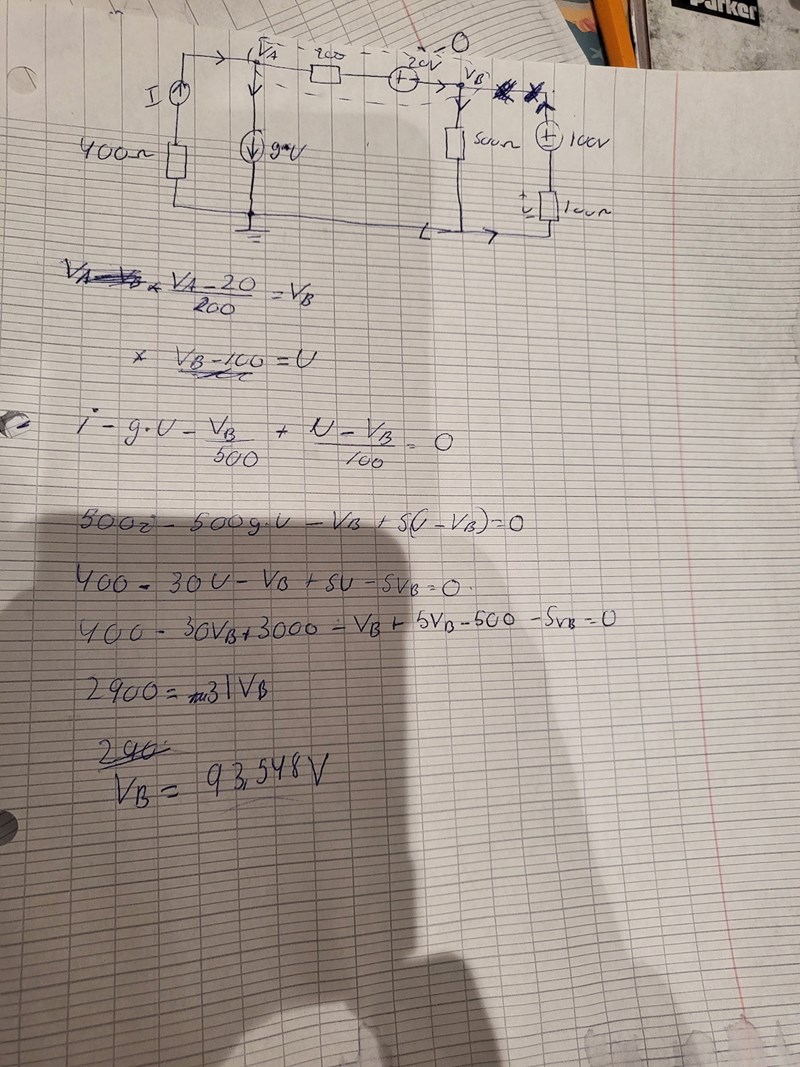 Parker
VA
200
20V
0
VB
I
400Ω
g·U
500Ω
100V
U
100Ω
VA - VB × VA-20/200 = VB
× VB-100 = U
i - g·U - VB/500 + U-VB/100 = 0
500i - 500g·U - VB + 5(U-VB)=0
400 - 30U - VB + 5U - 5VB = 0.
400 - 30VB + 3000 - VB + 5VB - 500 - 5VB = 0
2900 = 31VB
290
VB = 93,548V